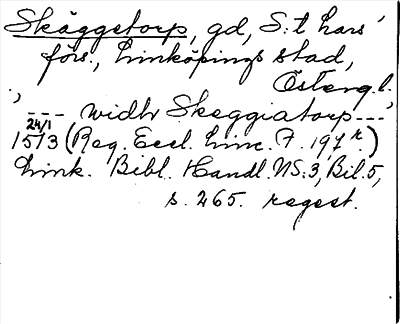 Skäggetorp, gd, S:t Lars'
förs., Linköpings stad,
Österg.l.
'--- widh Skeggiatorp---'
24/1
1513 (Reg. Eccl. Linc. F. 197 r.)
Link. Bibl. Handl. NS:3, Bil. 5,
s. 265. regest.